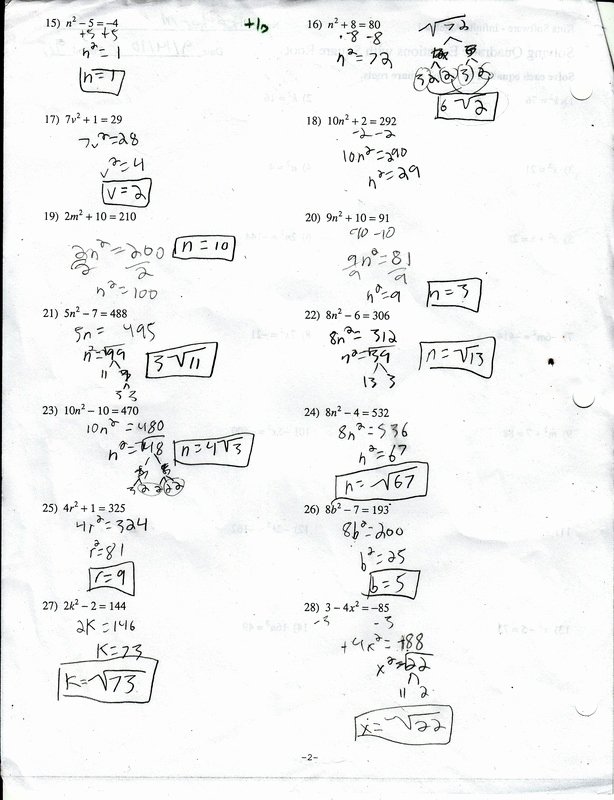 +1
15) n² − 5 = −4
+5 +5
n² = 1
n = 1
16) n² + 8 = 80
-8 -8
n² = 72
√72
3 2 2 3 2
6√2
17) 7v² + 1 = 29
7v² = 28
v² = 4
v = 2
18) 10n² + 2 = 292
-2 -2
10n² = 290
n² = 29
19) 2m² + 10 = 210
2n² = 200
2 2
n² = 100
n = 10
20) 9n² + 10 = 91
-10 -10
9n² = 81
9 9
n² = 9
n = 3
21) 5n² − 7 = 488
5n = 495
n² = √99
11 9
3 3
3√11
22) 8n² − 6 = 306
8n² = 312
n² = √39
13 3
n = √13
23) 10n² − 10 = 470
10n² = 480
n² = √48
3 2 2 2 2
n = 4√3
24) 8n² − 4 = 532
8n² = 536
n² = 67
n = √67
25) 4r² + 1 = 325
4r² = 324
r² = 81
r = 9
26) 8b² − 7 = 193
8b² = 200
b² = 25
b = 5
27) 2k² − 2 = 144
2K = 146
K = 73
K = √73
28) 3 − 4x² = −85
-3 -3
+4x² = +88
x² = √22
11 2
x = √22
-2-